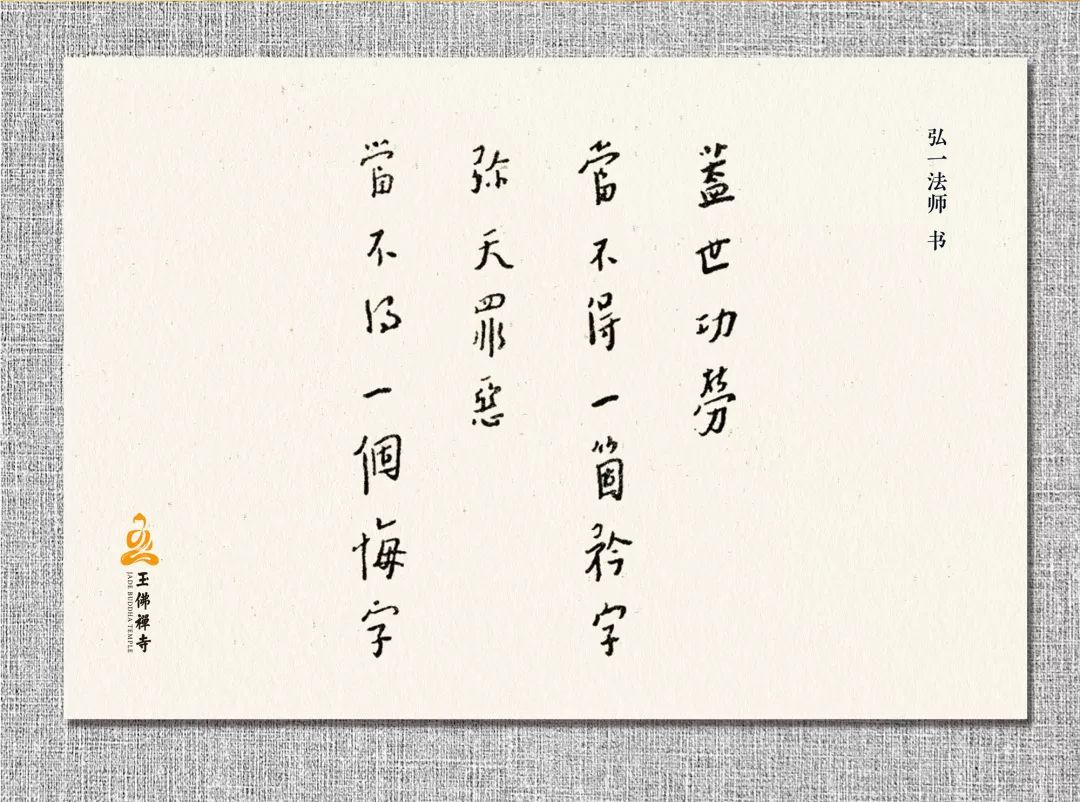 弘一法师 书
蓋世功勞
當不得一箇矜字
弥天罪惡
當不得一個悔字
玉佛禅寺
JADE BUDDHA TEMPLE